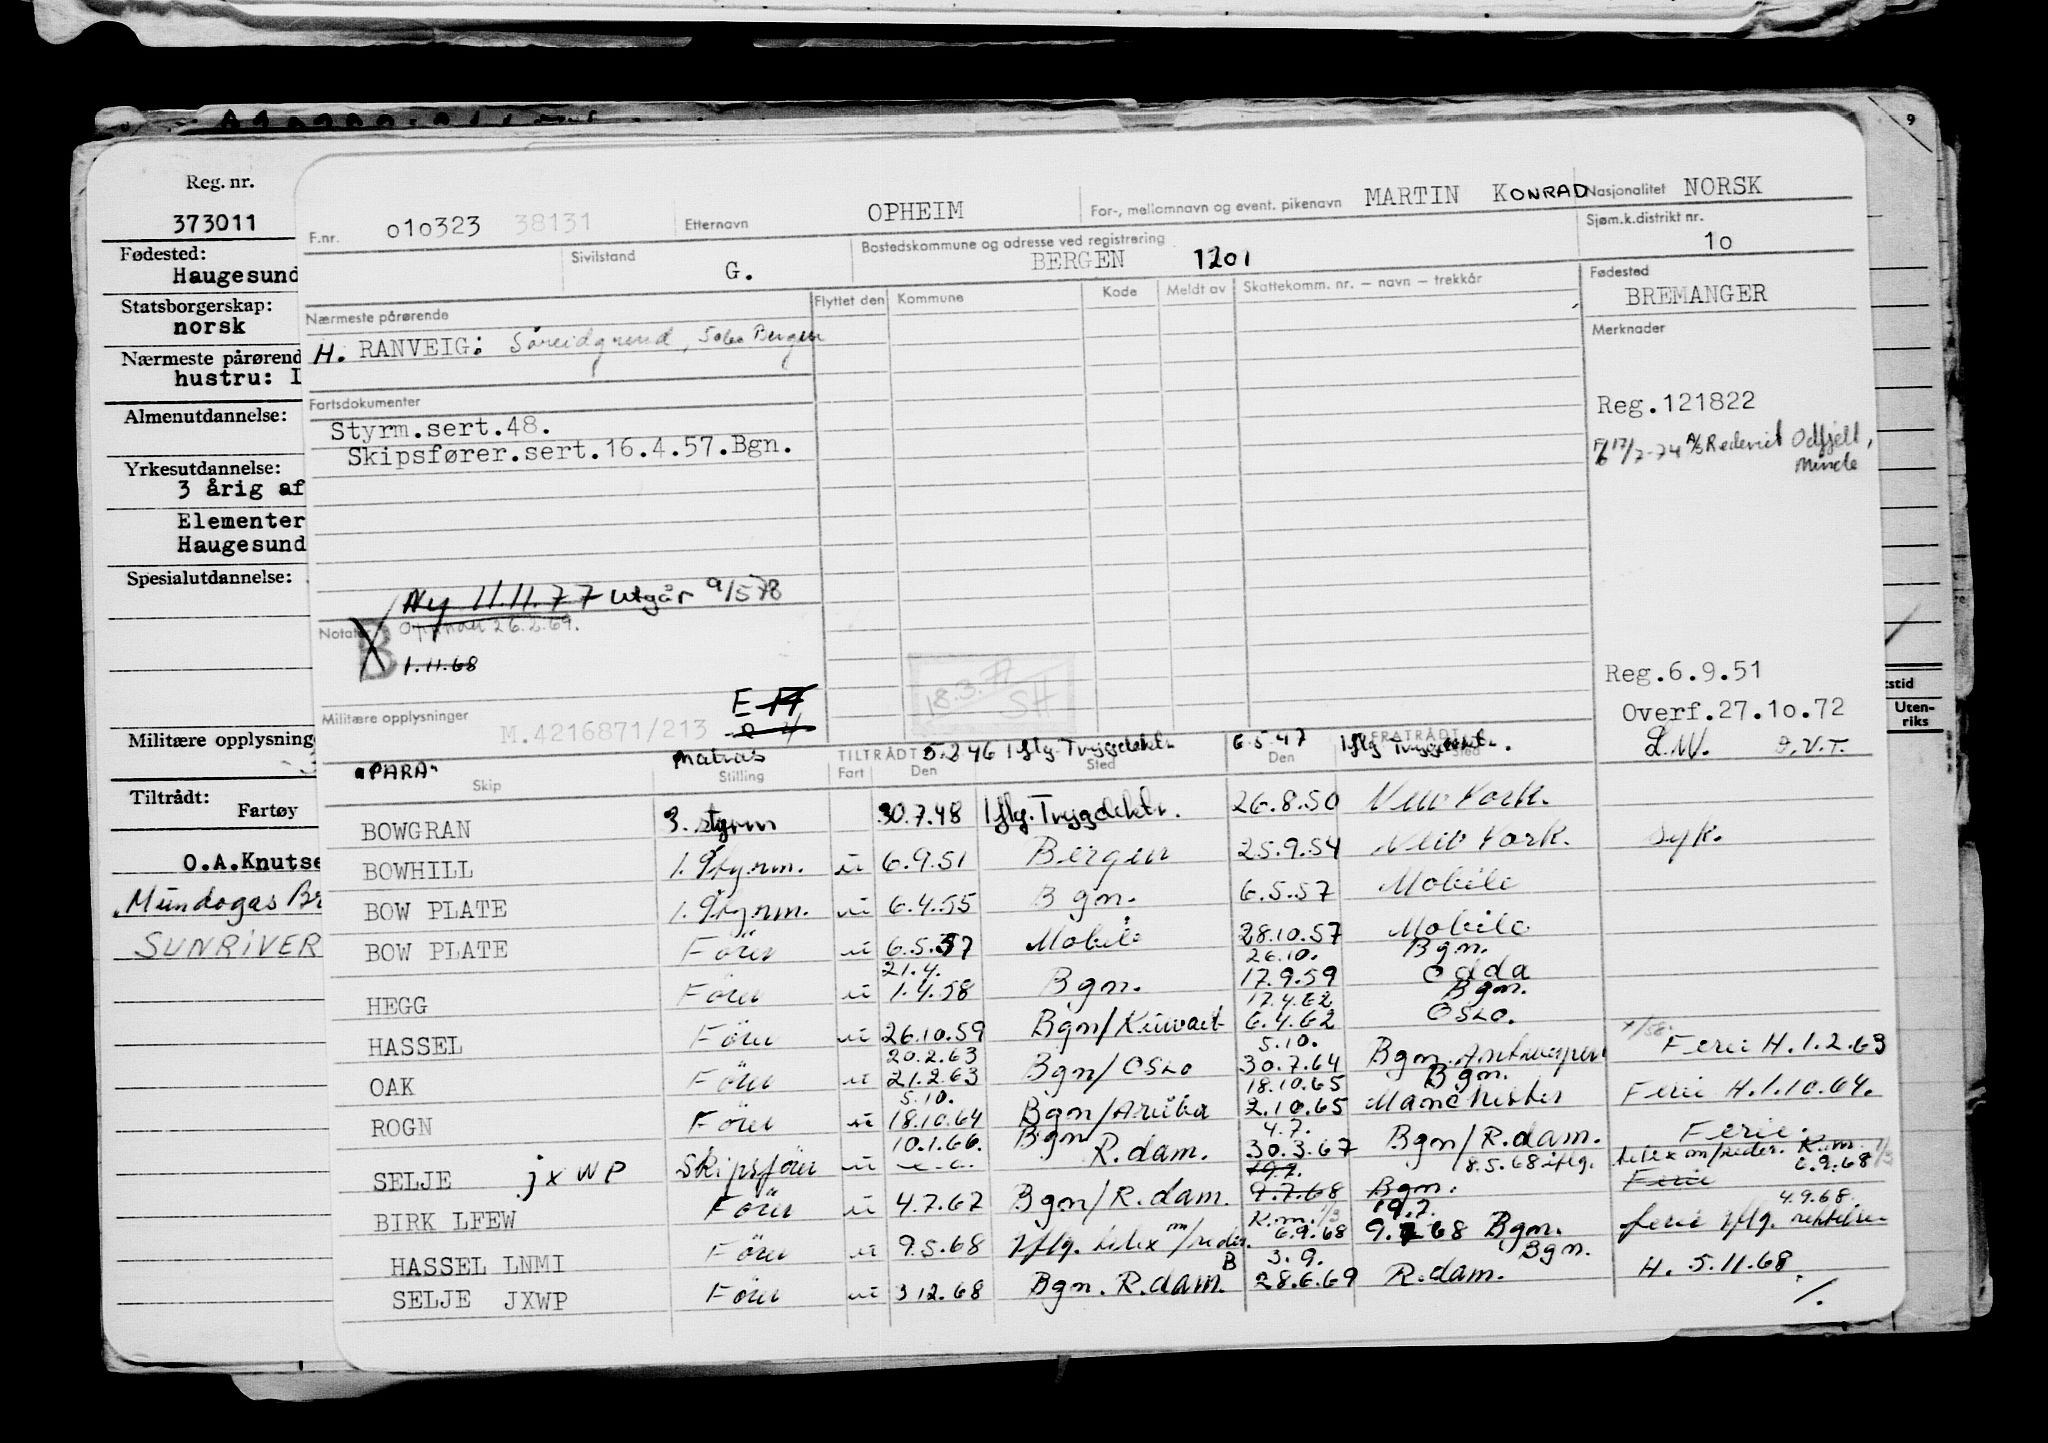 9
Reg. nr.
373011
Fødested:
Haugesund
Statsborgerskap:
norsk
Nærmeste pårørend
hustru: I
Almenutdannelse:
Yrkesutdannelse:
3 årig af
Elementer
Haugesund
Spesialutdannelse:
Militære opplysning
Tiltrådt:
Fartøy
O.A.Knutse
Mundogas Br
SUNRIVER
stid
Uten-
riks
F.nr. 010323 38131 Etternavn OPHEIM For-, mellomnavn og event. pikenavn MARTIN KONRAD Nasjonalitet NORSK
Sivilstand G. Bostedskommune og adresse ved registrering BERGEN 1201 Sjøm.k.distrikt nr. 10
Nærmeste pårørende Flyttet den Kommune Kode Meldt av Skattekomm. nr. – navn – trekkår Fødested BREMANGER
H. RANVEIG: Søreidgrend, Bergen
Merknader
Fartsdokumenter
Styrm.sert.48.
Skipsfører.sert.16.4.57.Bgn.
Reg.121822
17/7-74 A/S Rederiet Odfjell,
Minde
Ny 11.11.77 Utgår 9/5 78
Notater B 26.2.69.
1.11.68
18.3.71
SH
E 17
Militære opplysninger M.4216871/213
Reg.6.9.51
Overf.27.10.72
L.W. D.V.T.
"PARA" Matros TILTRÅDT 5.2.46 Iflg. Trygdektr. 6.5.47 FRATRÅDT Iflg Trygdektr.
Skip Stilling Fart Den Sted Den Sted
BOWGRAN 3. styrm 30.7.48 Iflg. Trygdektr. 26.8.50 New York.
BOWHILL 1. Styrm. u 6.9.51 Bergen 25.9.54 New York. Syk.
BOW PLATE 1. Styrm. u 6.4.55 Bgn. 6.5.57 Mobile
BOW PLATE Fører u 6.5.57 Mobile 28.10.57 Mobile
21.4. 26.10. Bgn.
HEGG Fører u 1.4.58 Bgn. 17.9.59 Odda
17.4.62 Bgn.
HASSEL Fører u 26.10.59 Bgn/Kuwait 6.4.62 Oslo.
20.2.63 5.10.
OAK Fører u 21.2.63 Bgn/Oslo 30.7.64 Bgn. Antwerpen Ferie H.1.2.63
5.10. 18.10.65 Bgn.
ROGN Fører u 18.10.64 Bgn/Aruba 2.10.65 Manchester Ferie H.1.10.64.
10.1.66. Bgn 4.7.
SELJE jxWP Skipsfører u R.dam. 30.3.67 Bgn/R.dam. Ferie.
19.7. 8.5.68 iflg. telex m/reder. K.m. 1/3
6.9.68
BIRK LFEW Fører u 4.7.67 Bgn/R.dam. 9.7.68 Bgn. Ferie
K.m. 1/3 19.7. 4.9.68.
HASSEL LNMI Fører u 9.5.68 Iflg. telex m/reder. 6.9.68 9.7.68 Bgn. ferie iflg.
B 3.9. Bgn.
SELJE JXWP Fører u 3.12.68 Bgn. R.dam. 28.6.69 R.dam. H. 5.11.68.
/.